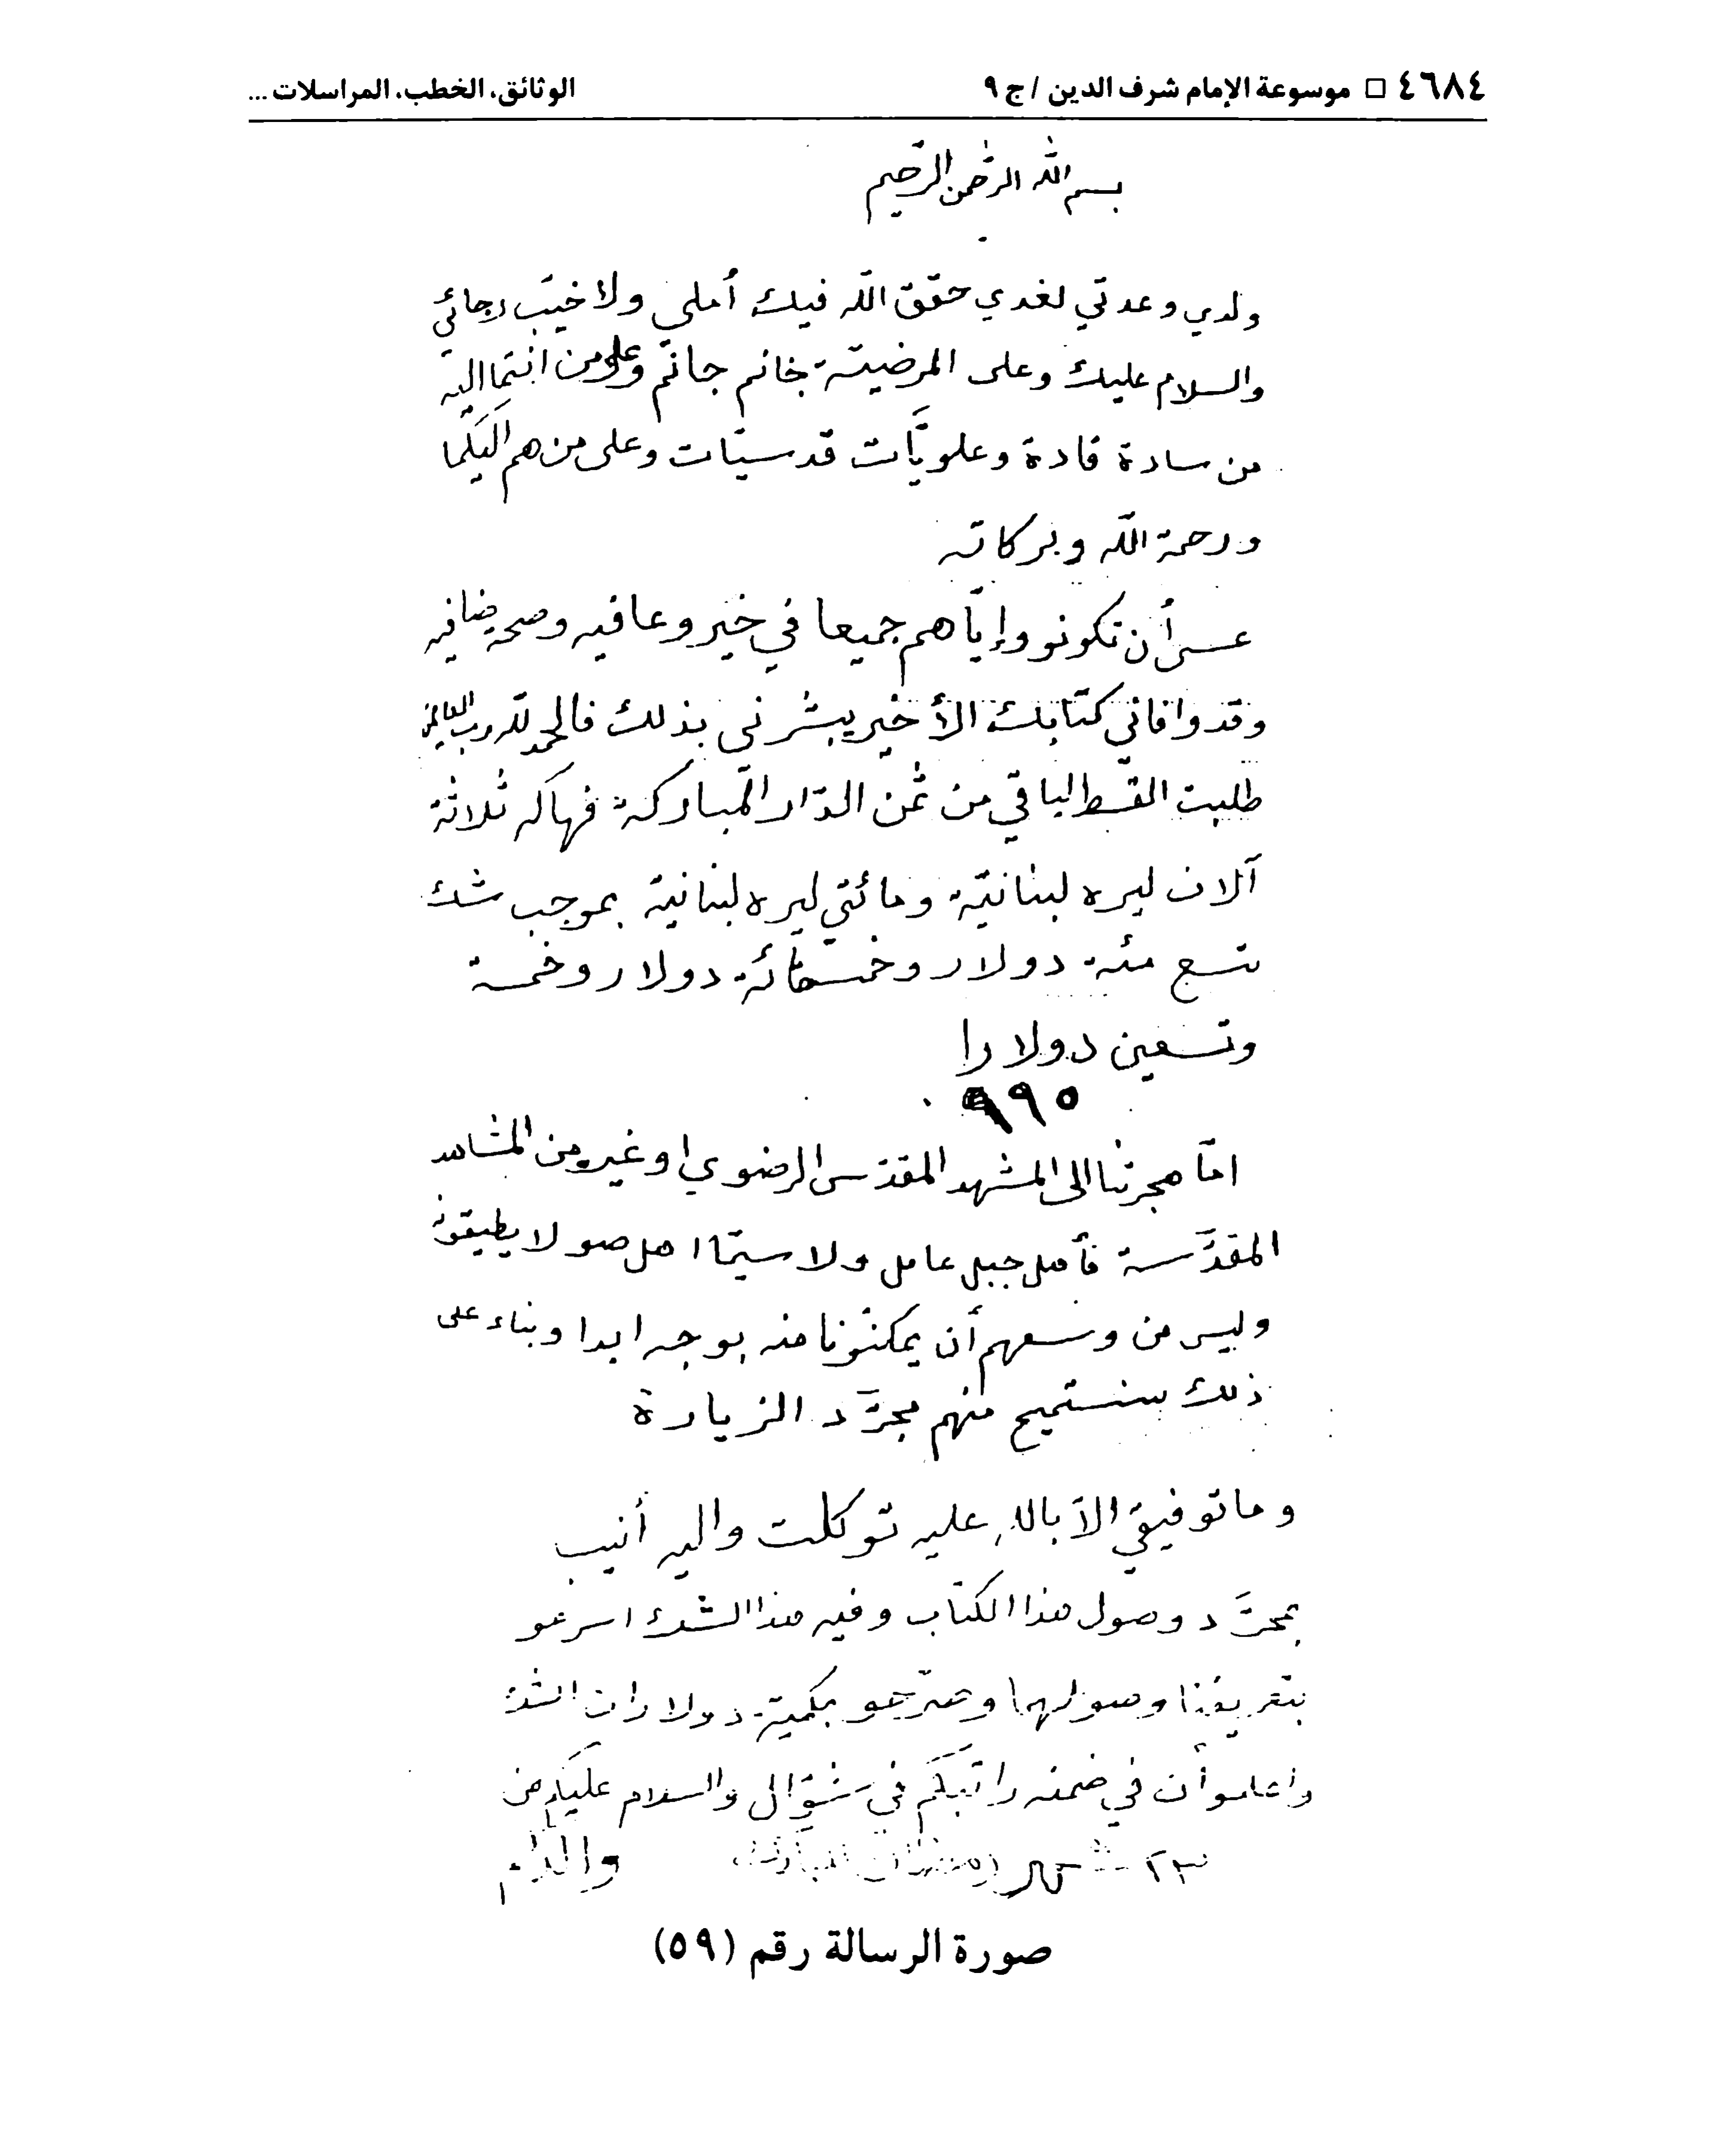 ٤٦٨٤ □ موسوعة الإمام شرف الدين / ج ٩
الوثائق، الخطب، المراسلات ...
بسم الله الرّحمن الرّحيم
ولدي وعدتي لغدي حقق اللّه فيك أملي ولا خيّب رجائي
والسلام عليك وعلى المرضيّة خانم جانم وعلى من انتما اليه
من سادة قادة وعلويَّات قدسيّات وعلى من هم اليَكُما
ورحمة اللّه وبركاته
عسى أن تكونو وإيّاهم جميعا في خير وعافيه وصحة ضافيه
وقد وافاني كتابك الأخير يبشرني بذلك فالحمد للّه رب العالمين
طلبت القسط الباقي من ثمن الدّار المباركة فهاكه ثلاثة
آلاف ليره لبنانيّة ومائتي ليره لبنانية بموجب شك
تسع مئة دولار وخمسمائة دولار وخمسة
وتسعين دولارا
٩٩٥
امّا هجرتنا الى المشهد المقدّس الرضوي او غيره من المشاهد
المقدَّسة فأهل جبل عامل ولا سيّما اهل صور لا يطيقونه
وليس من وسعهم أن يمكنّونا منه بوجه ابدا وبناء على
ذلك سنستميح منهم مجرَّد الزيارة
وما توفيقي الّا بالله عليه توكلت واليه أنيب
بمجرَّد وصول هذا الكتاب وفيه هذا الشك اسرعو
بتعريفنا وصولهما وصرّحو بكمية دولارات الشك
واعلموا أن في ضمنه راتبَكم في شوّال والسلام عليكم من
٢٣ شهر رمضان المبارك والدكم
صورة الرسالة رقم (٥٩)